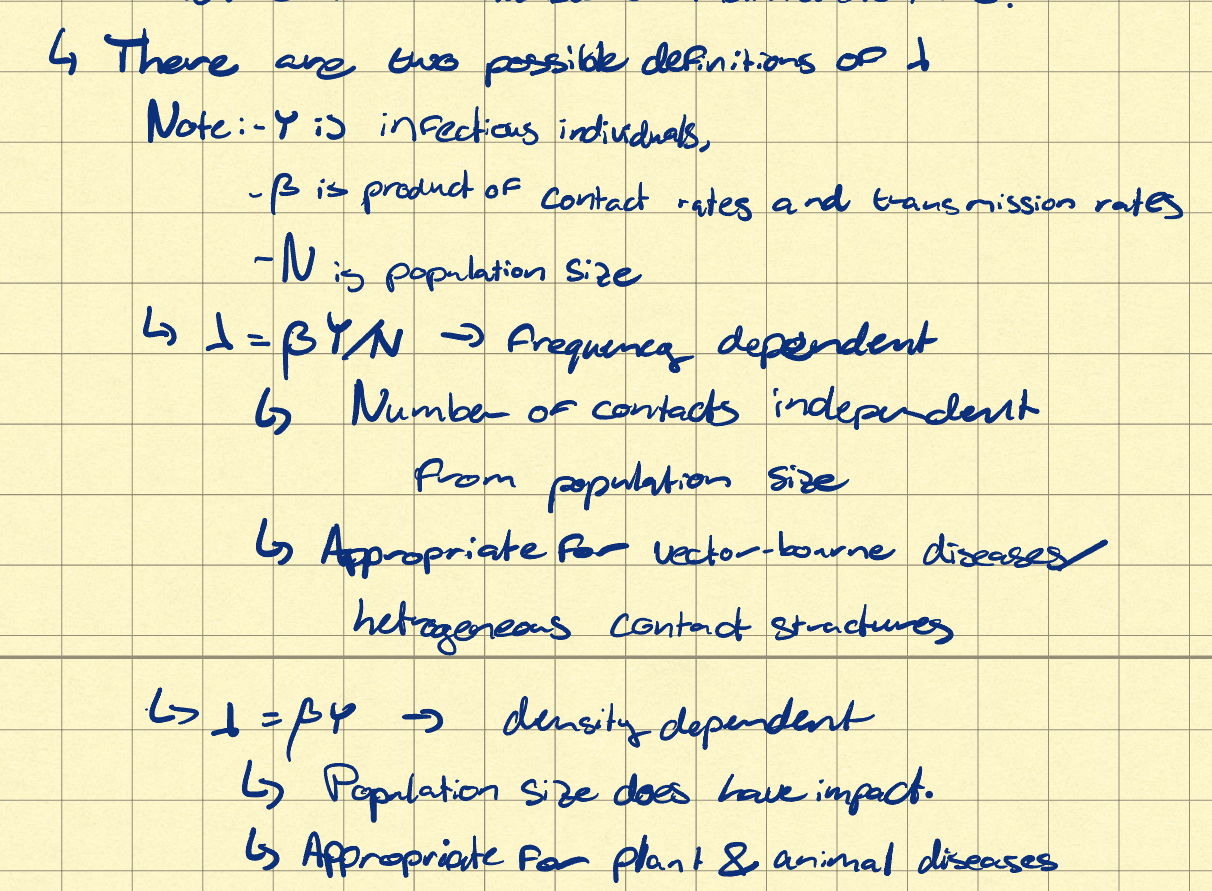 ↳ There are two possible definitions of λ
Note:- Y is infectious individuals,
- β is product of contact rates and transmission rates
- N is population size
↳ λ = βY/N → frequency dependent
↳ Number of contacts independent
from population size
↳ Appropriate for vector-bourne diseases/
hetrogeneous contact structures
↳ λ = βY → density dependent
↳ Population size does have impact.
↳ Appropriate for plant & animal diseases